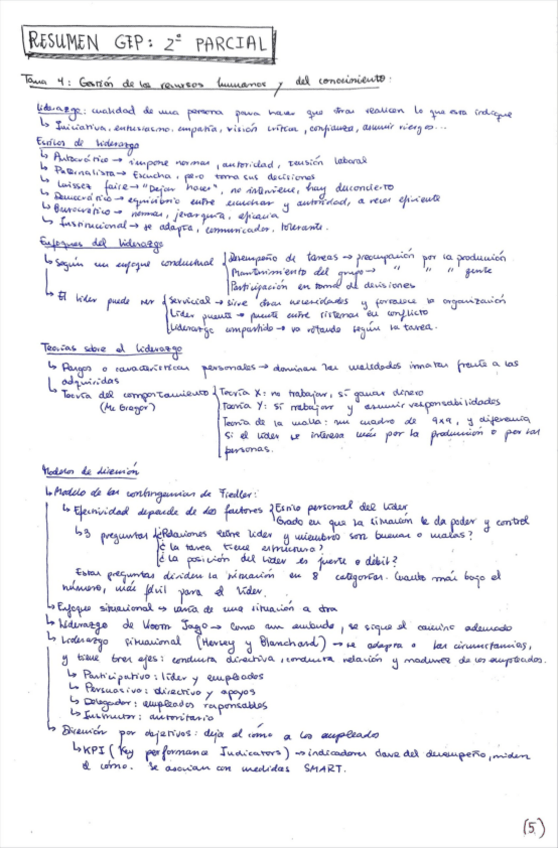 RESUMEN GIP: 2º PARCIAL
Tema 4: Gestión de los recursos humanos y del conocimiento.
Liderazgo: cualidad de una persona para hacer que otras realicen lo que esta indique
↳ Iniciativa, entusiasmo, empatía, visión crítica, confianza, asumir riesgos...
Estilos de liderazgo
↳ Autocrático → impone normas, autoridad, tensión laboral
↳ Paternalista → Escucha, pero toma sus decisiones
↳ Laissez faire → "Dejar hacer", no interviene, hay desconcierto
↳ Democrático → equilibrio entre escuchar y autoridad, a veces eficiente
↳ Burocrático → normas, jerarquía, eficacia
↳ Institucional → se adapta, comunicador, tolerante.
Enfoques del liderazgo
↳ Según un enfoque conductual { Desempeño de tareas → preocupación por la producción
Mantenimiento del grupo → " " " gente
Participación en toma de decisiones
↳ El líder puede ser { Servicial → sirve otras necesidades y fortalece la organización
Líder puente → puente entre sistemas en conflicto
Liderazgo compartido → va rotando según la tarea.
Teorías sobre el liderazgo
↳ Rasgos o características personales → dominan las cualidades innatas frente a las
adquiridas
↳ Teoría del comportamiento { Teoría X: no trabajar, sí ganar dinero
(Mc Gregor) Teoría Y: sí trabajar y asumir responsabilidades
Teoría de la malla: un cuadro de 9x9, y diferencia
si el líder se interesa más por la producción o por las
personas.
Modelos de dirección
↳ Modelo de las contingencias de Fiedler:
↳ Efectividad depende de dos factores { Estilo personal del líder
Grado en que la situación le da poder y control
↳ 3 preguntas { ¿Relaciones entre líder y miembros son buenas o malas?
¿La tarea tiene estructura?
¿La posición del líder es fuerte o débil?
Estas preguntas dividen la situación en 8 categorías. Cuanto más bajo el
número, más fácil para el líder.
↳ Enfoque situacional → varía de una situación a otra
↳ Liderazgo de Vroom Jago → como un embudo, se sigue el camino adecuado
↳ Liderazgo situacional (Hersey y Blanchard) → se adapta a las circunstancias,
y tiene tres ejes: conducta directiva, conducta relación y madurez de los empleados.
↳ Participativo: líder y empleados
↳ Persuasivo: directivo y apoyos
↳ Delegador: empleados responsables
↳ Instructor: autoritario
↳ Dirección por objetivos: deja el cómo a los empleados
↳ KPI (Key performance Indicators) → indicadores clave del desempeño, miden
el cómo. Se asocian con medidas SMART.
(5)